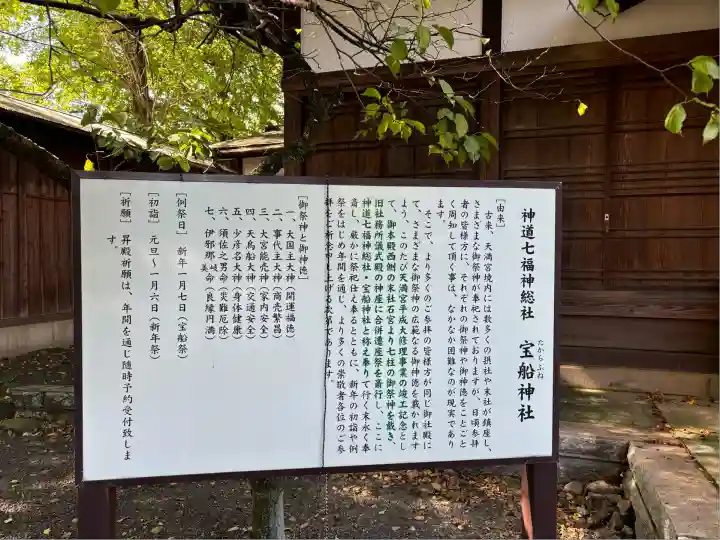 神道七福神総社　宝船神社
たからぶね
［由来］
古来、天満宮境内には数多くの摂社や末社が鎮座し、
さまざまな御祭神が奉祀されておりますが、日頃参拝
者の皆様方に、それぞれの御祭神や御神徳をことごと
く周知して頂く事は、なかなか困難なのが現実であり
ます。
そこで、より多くのご参拝の皆様方が同じ御社殿に
て、さまざまな御祭神の広範なる御神徳を戴かれます
よう、このたび天満宮平成大修理事業の竣工記念とし
て、御本殿西側の末社石宮より七柱の御祭神を戴き、
旧社務所儀式殿の神座に合併遷座祭を斎行し、ここに
神道七福神総社・宝船神社と称え奉りて行く末永く奉
斎し、厳かに祭祀仕え奉るとともに、新年の初詣や例
祭をはじめ年間を通じ、より多くの崇敬者各位のご参
拝をご祈念申し上げる次第であります。
［御祭神と御神徳］
一、大国主大神（開運福徳）
二、事代主大神（商売繁昌）
三、大宮能売神（家内安全）
四、天鳥船大神（交通安全）
五、少彦名大神（身体健康）
六、須佐之男命（災難厄除）
七、伊邪那岐命・美命（良縁円満）
［例祭日］　新年一月七日（宝船祭）
［初詣］　元旦～一月六日（新年祭）
［祈願］　昇殿祈願は、年間を通じ随時予約受付致しま
す。